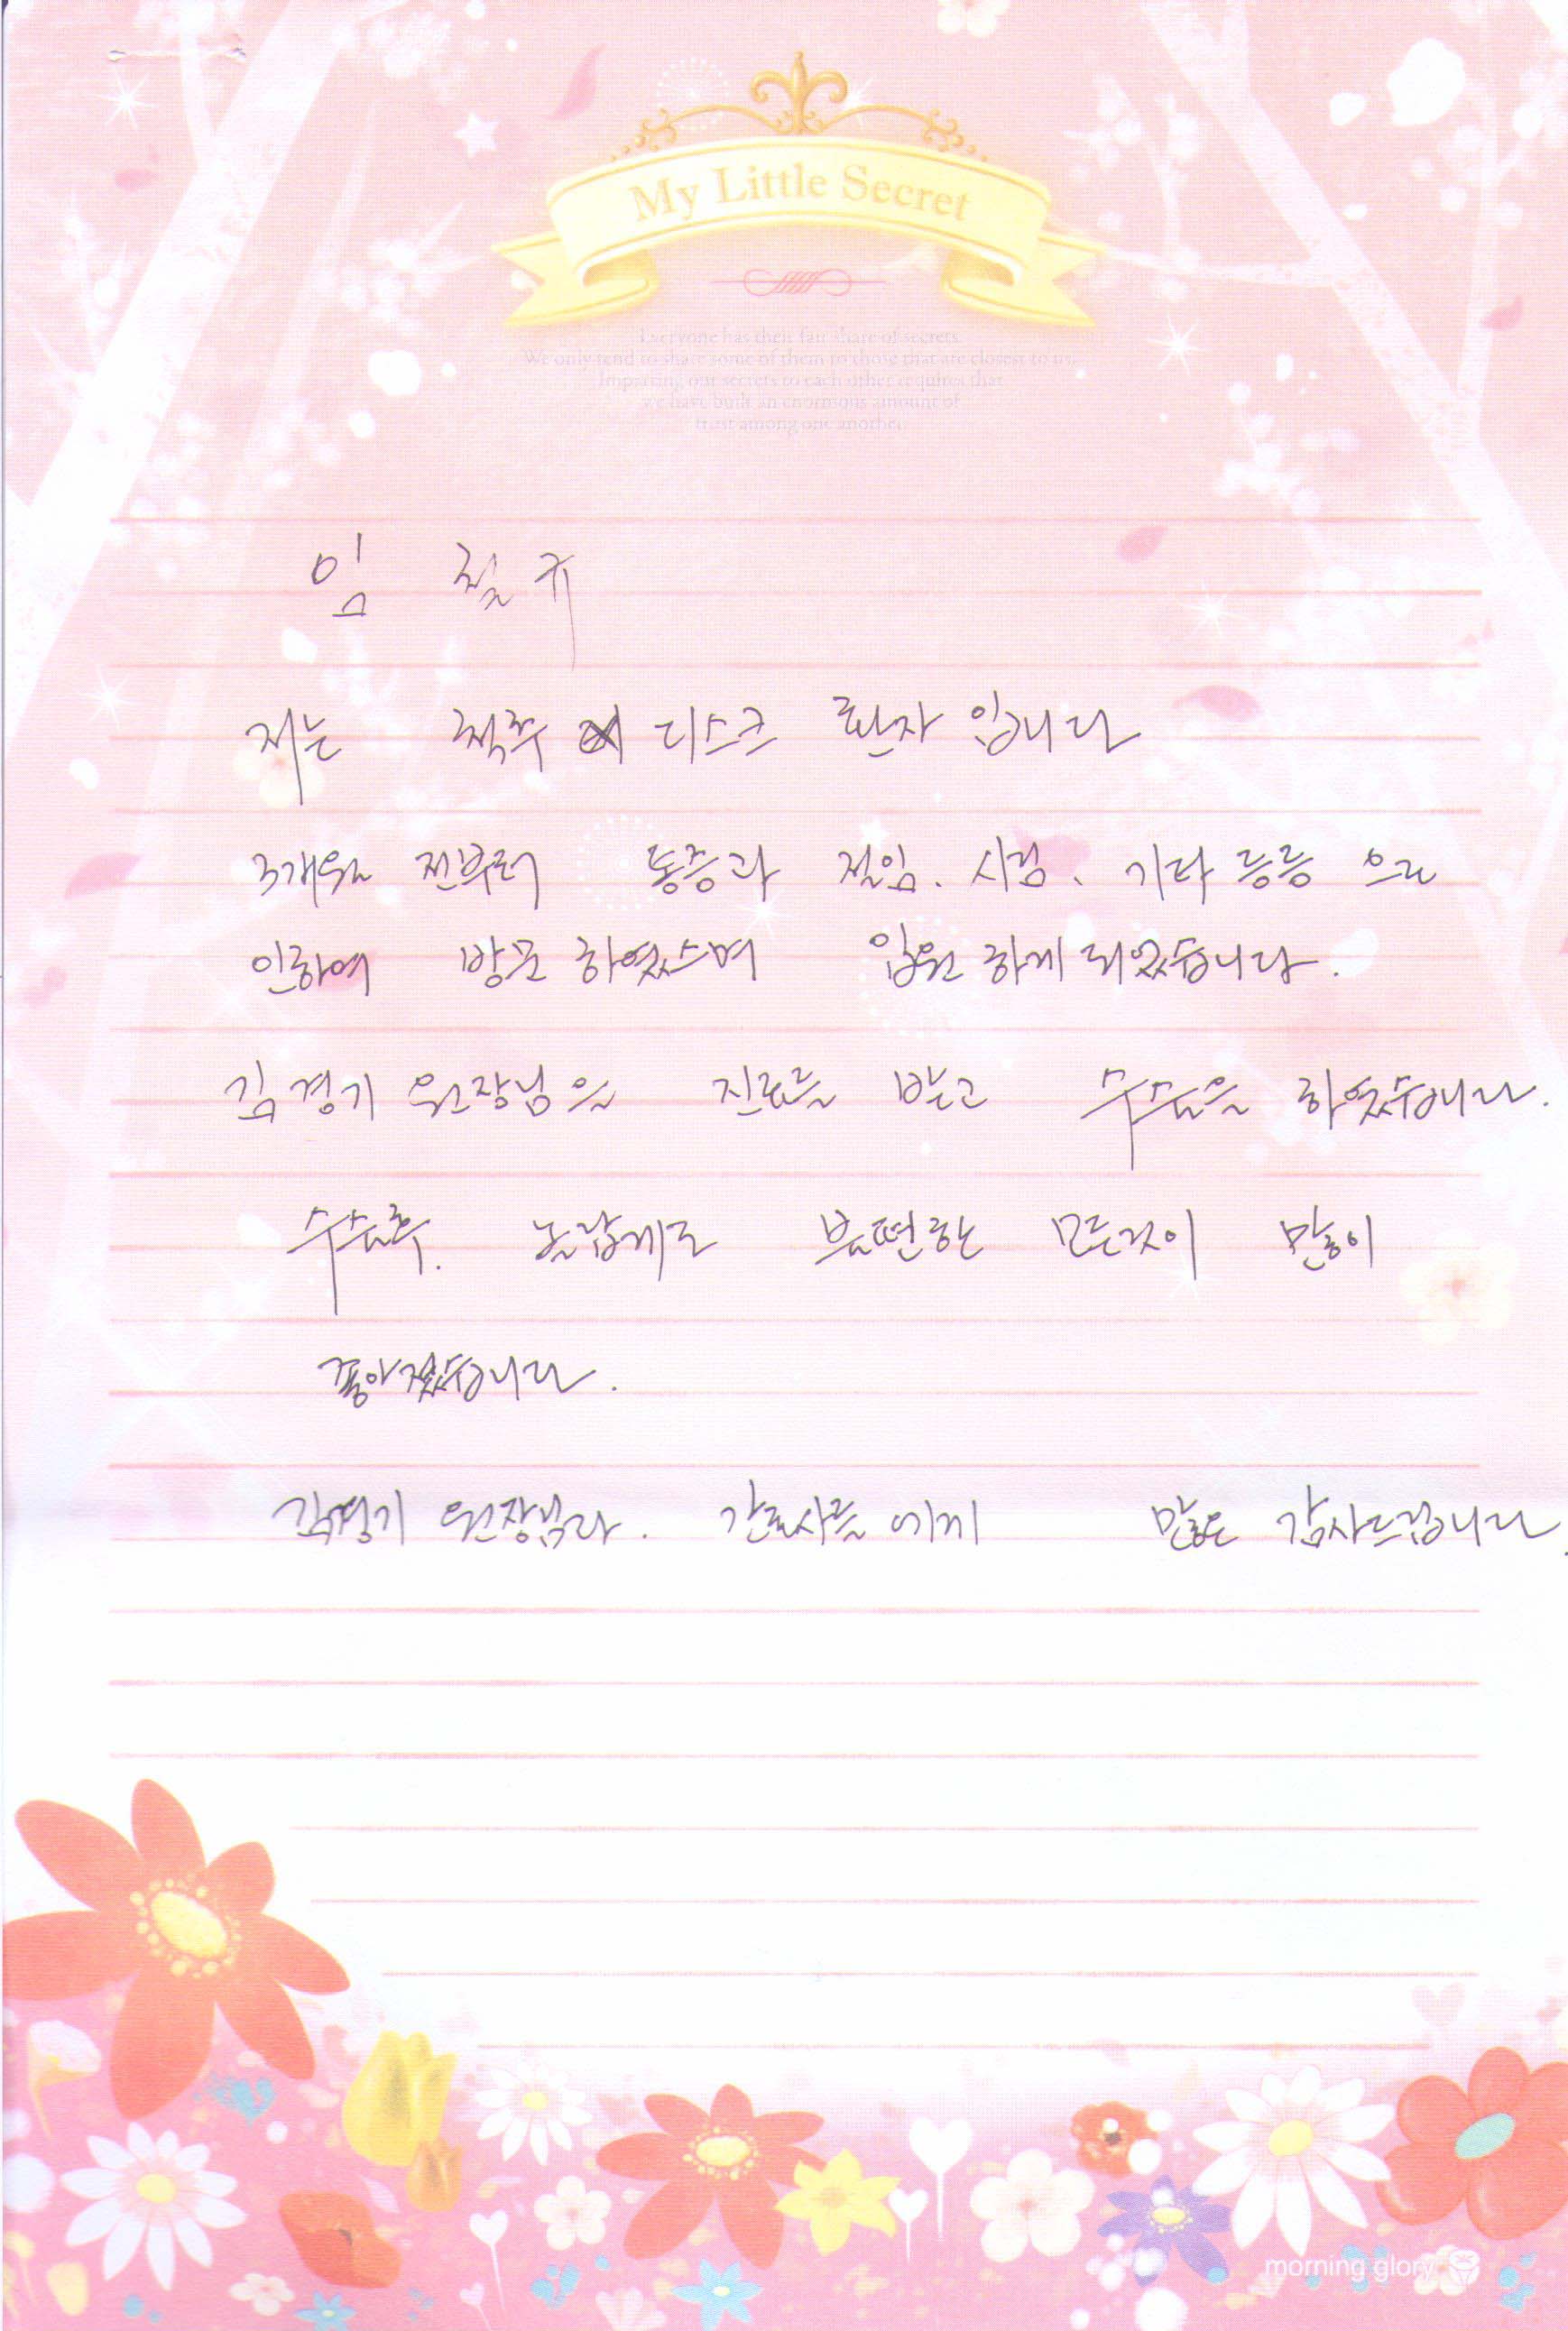 My Little Secret
Everyone has their fair share of secrets.
We only tend to share some of them to those that are closest to us.
Imparting our secrets to each other requires that
we have built an enormous amount of
trust among one another.
임 철규
저는 척추 디스크 환자 입니다
3개월 전부터 통증과 절임. 시림. 기타 등등 으로
인하여 방문 하였으며 입원 하게 되었습니다.
김경기 원장님을 진료를 받고 수술을 하였습니다.
수술후. 놀랍게도 불편한 모든것이 많이
좋아졌습니다.
김경기 원장님과. 간호사들 에게 많은 감사드립니다.
morning glory